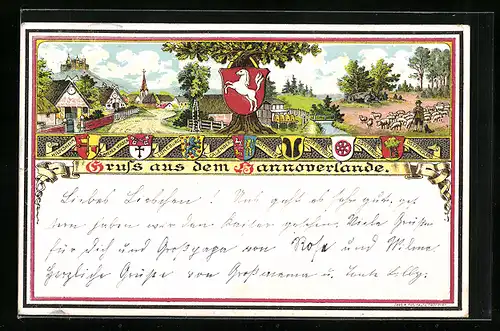 Gruss aus dem Hannoverlande.
Liebes Liebchen! Uns geht es sehr gut, ges
tern haben wir den Kaiser gesehen. Viele Grüsse
für Dich und Großpapa von Rose und Wilma
Herzliche Grüsse von Grossmama u. Tante Lilly.